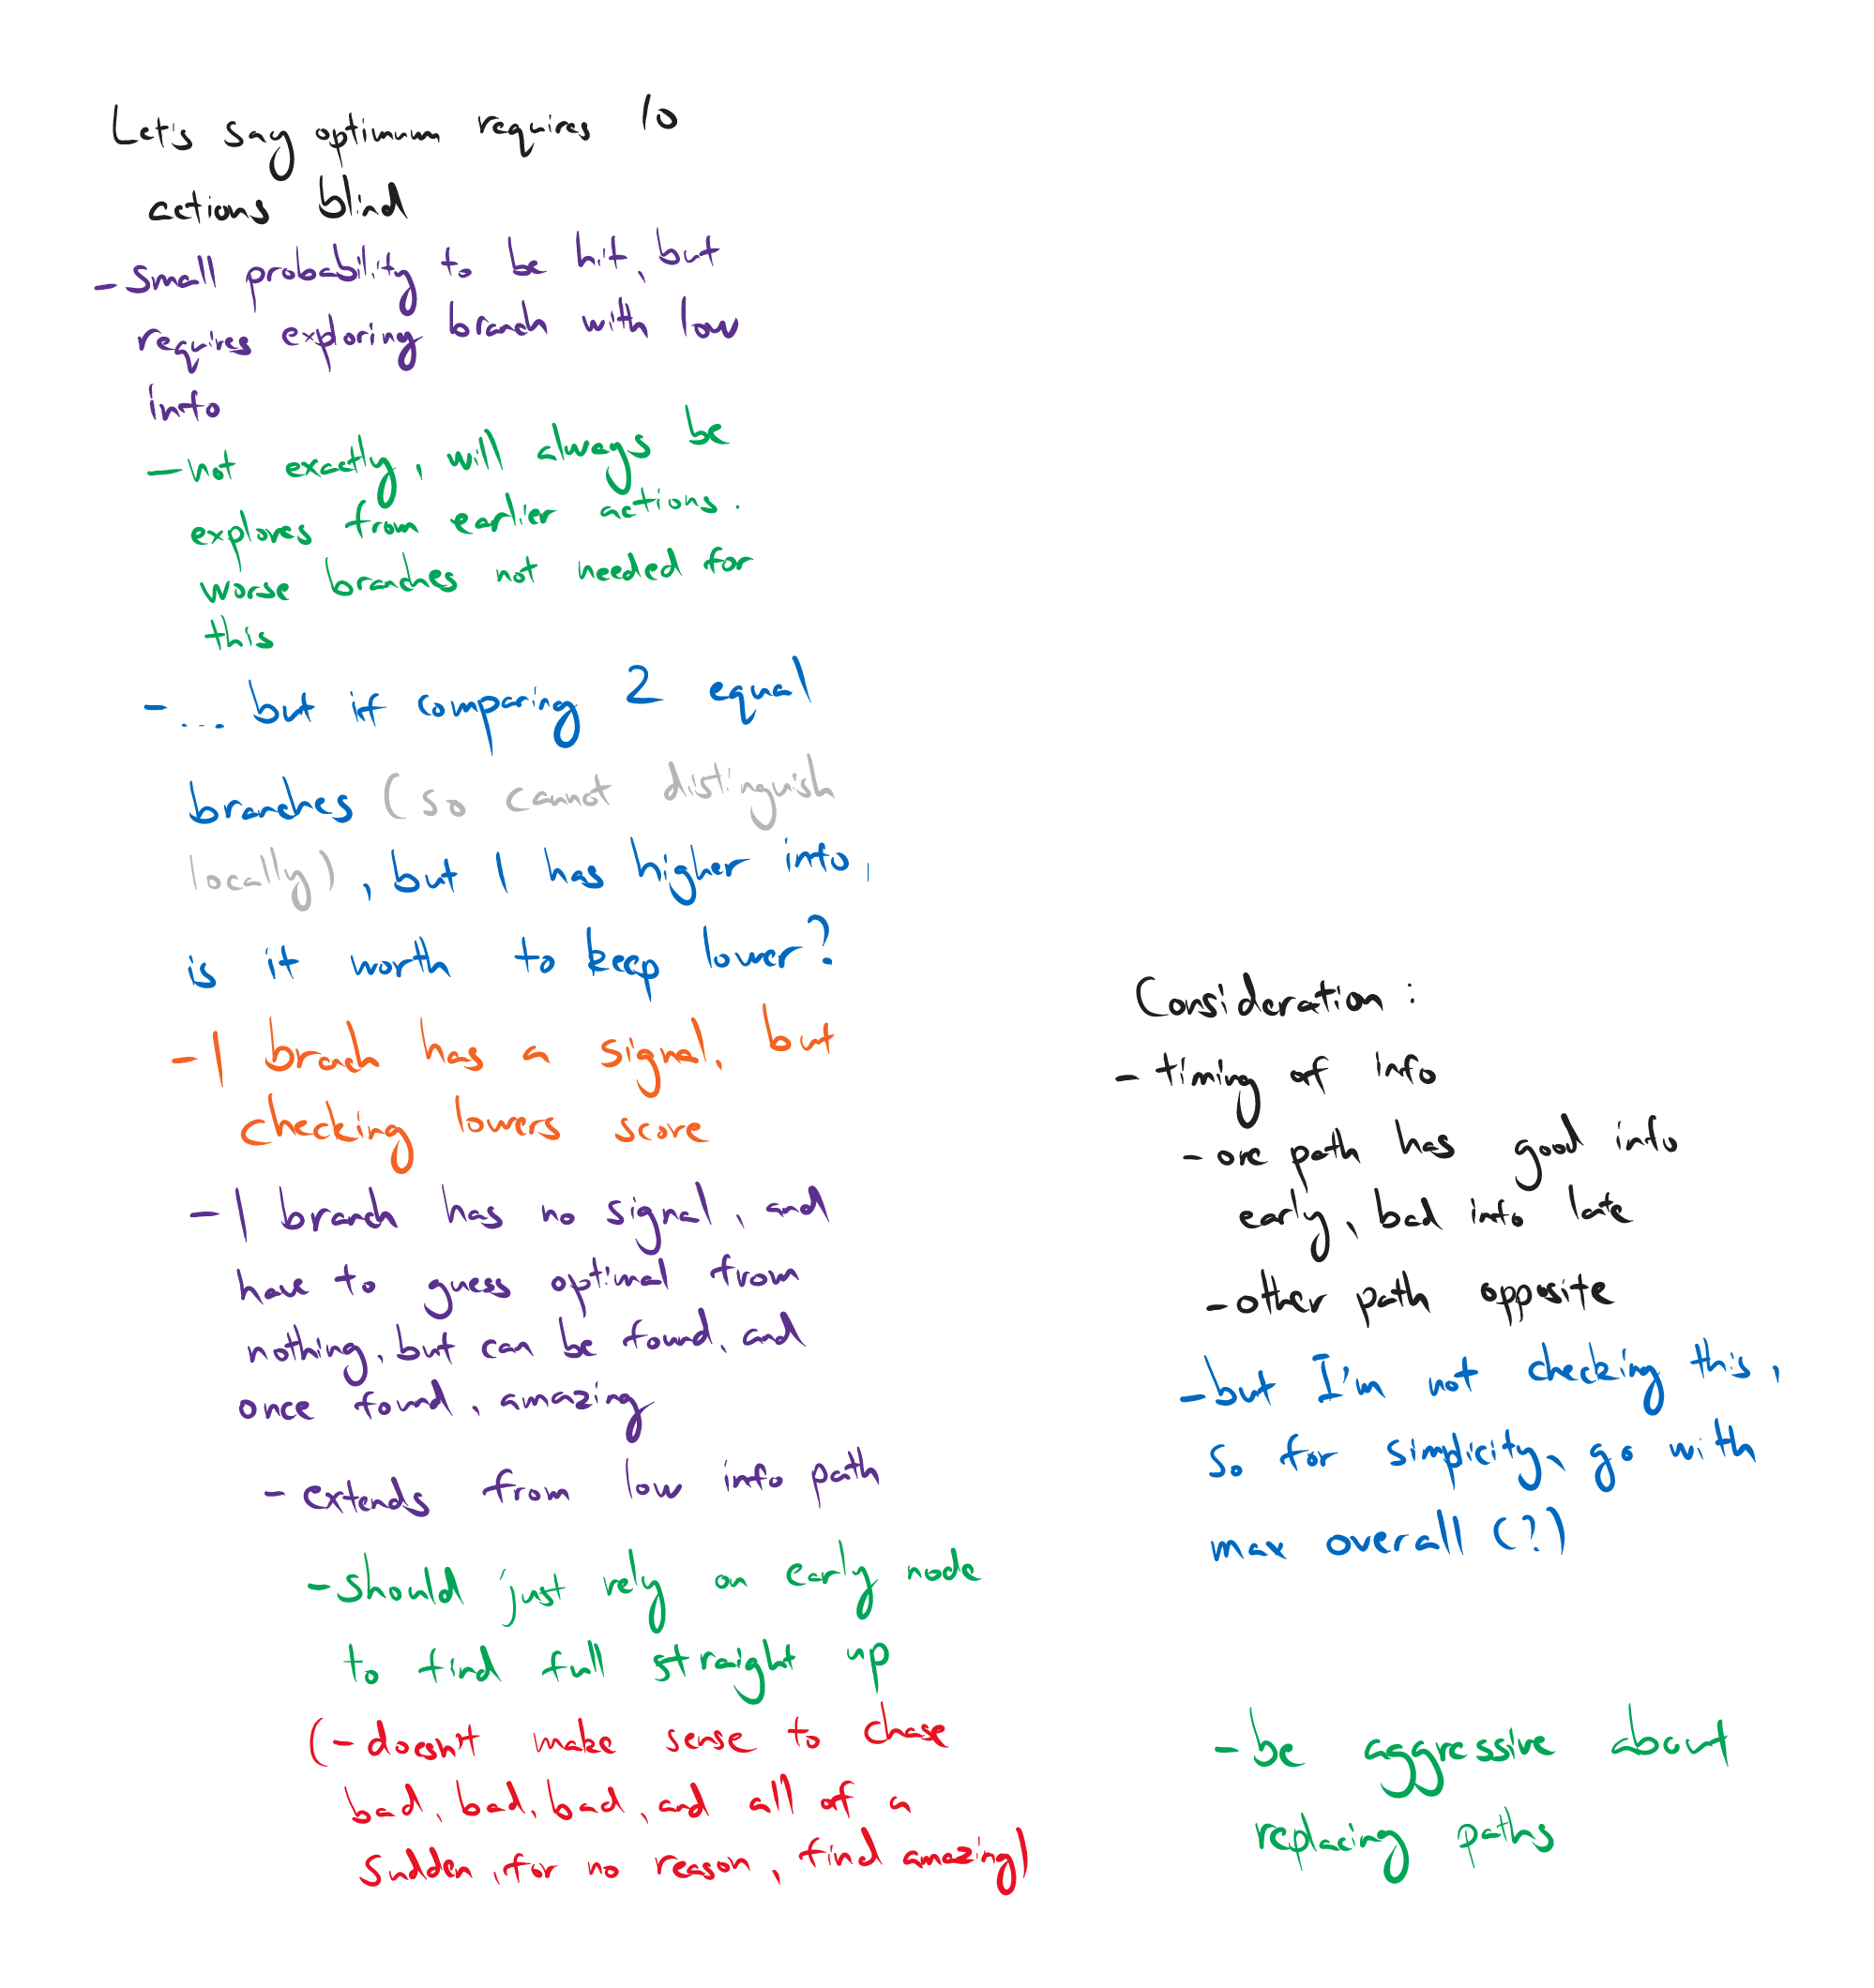 Let's say optimum requires 10
actions blind
- Small probability to be hit, but
requires exploring branch with low
info
- not exactly, will always be
explores from earlier actions.
worse branches not needed for
this
- ... but if comparing 2 equal
branches (so cannot distinguish
locally), but 1 has higher info,
is it worth to keep lower?
- 1 branch has a signal, but
checking lowers score
- 1 branch has no signal, and
have to guess optimal from
nothing, but can be found, and
once found, amazing
- extends from low info path
- should just rely on early node
to find full straight up
(- doesn't make sense to chase
bad, bad, bad, and all of a
sudden, for no reason, find amazing)
Consideration:
- timing of info
- one path has good info
early, bad info late
- other path opposite
- but I'm not checking this,
so for simplicity, go with
max overall (?)
- be aggressive about
replacing paths